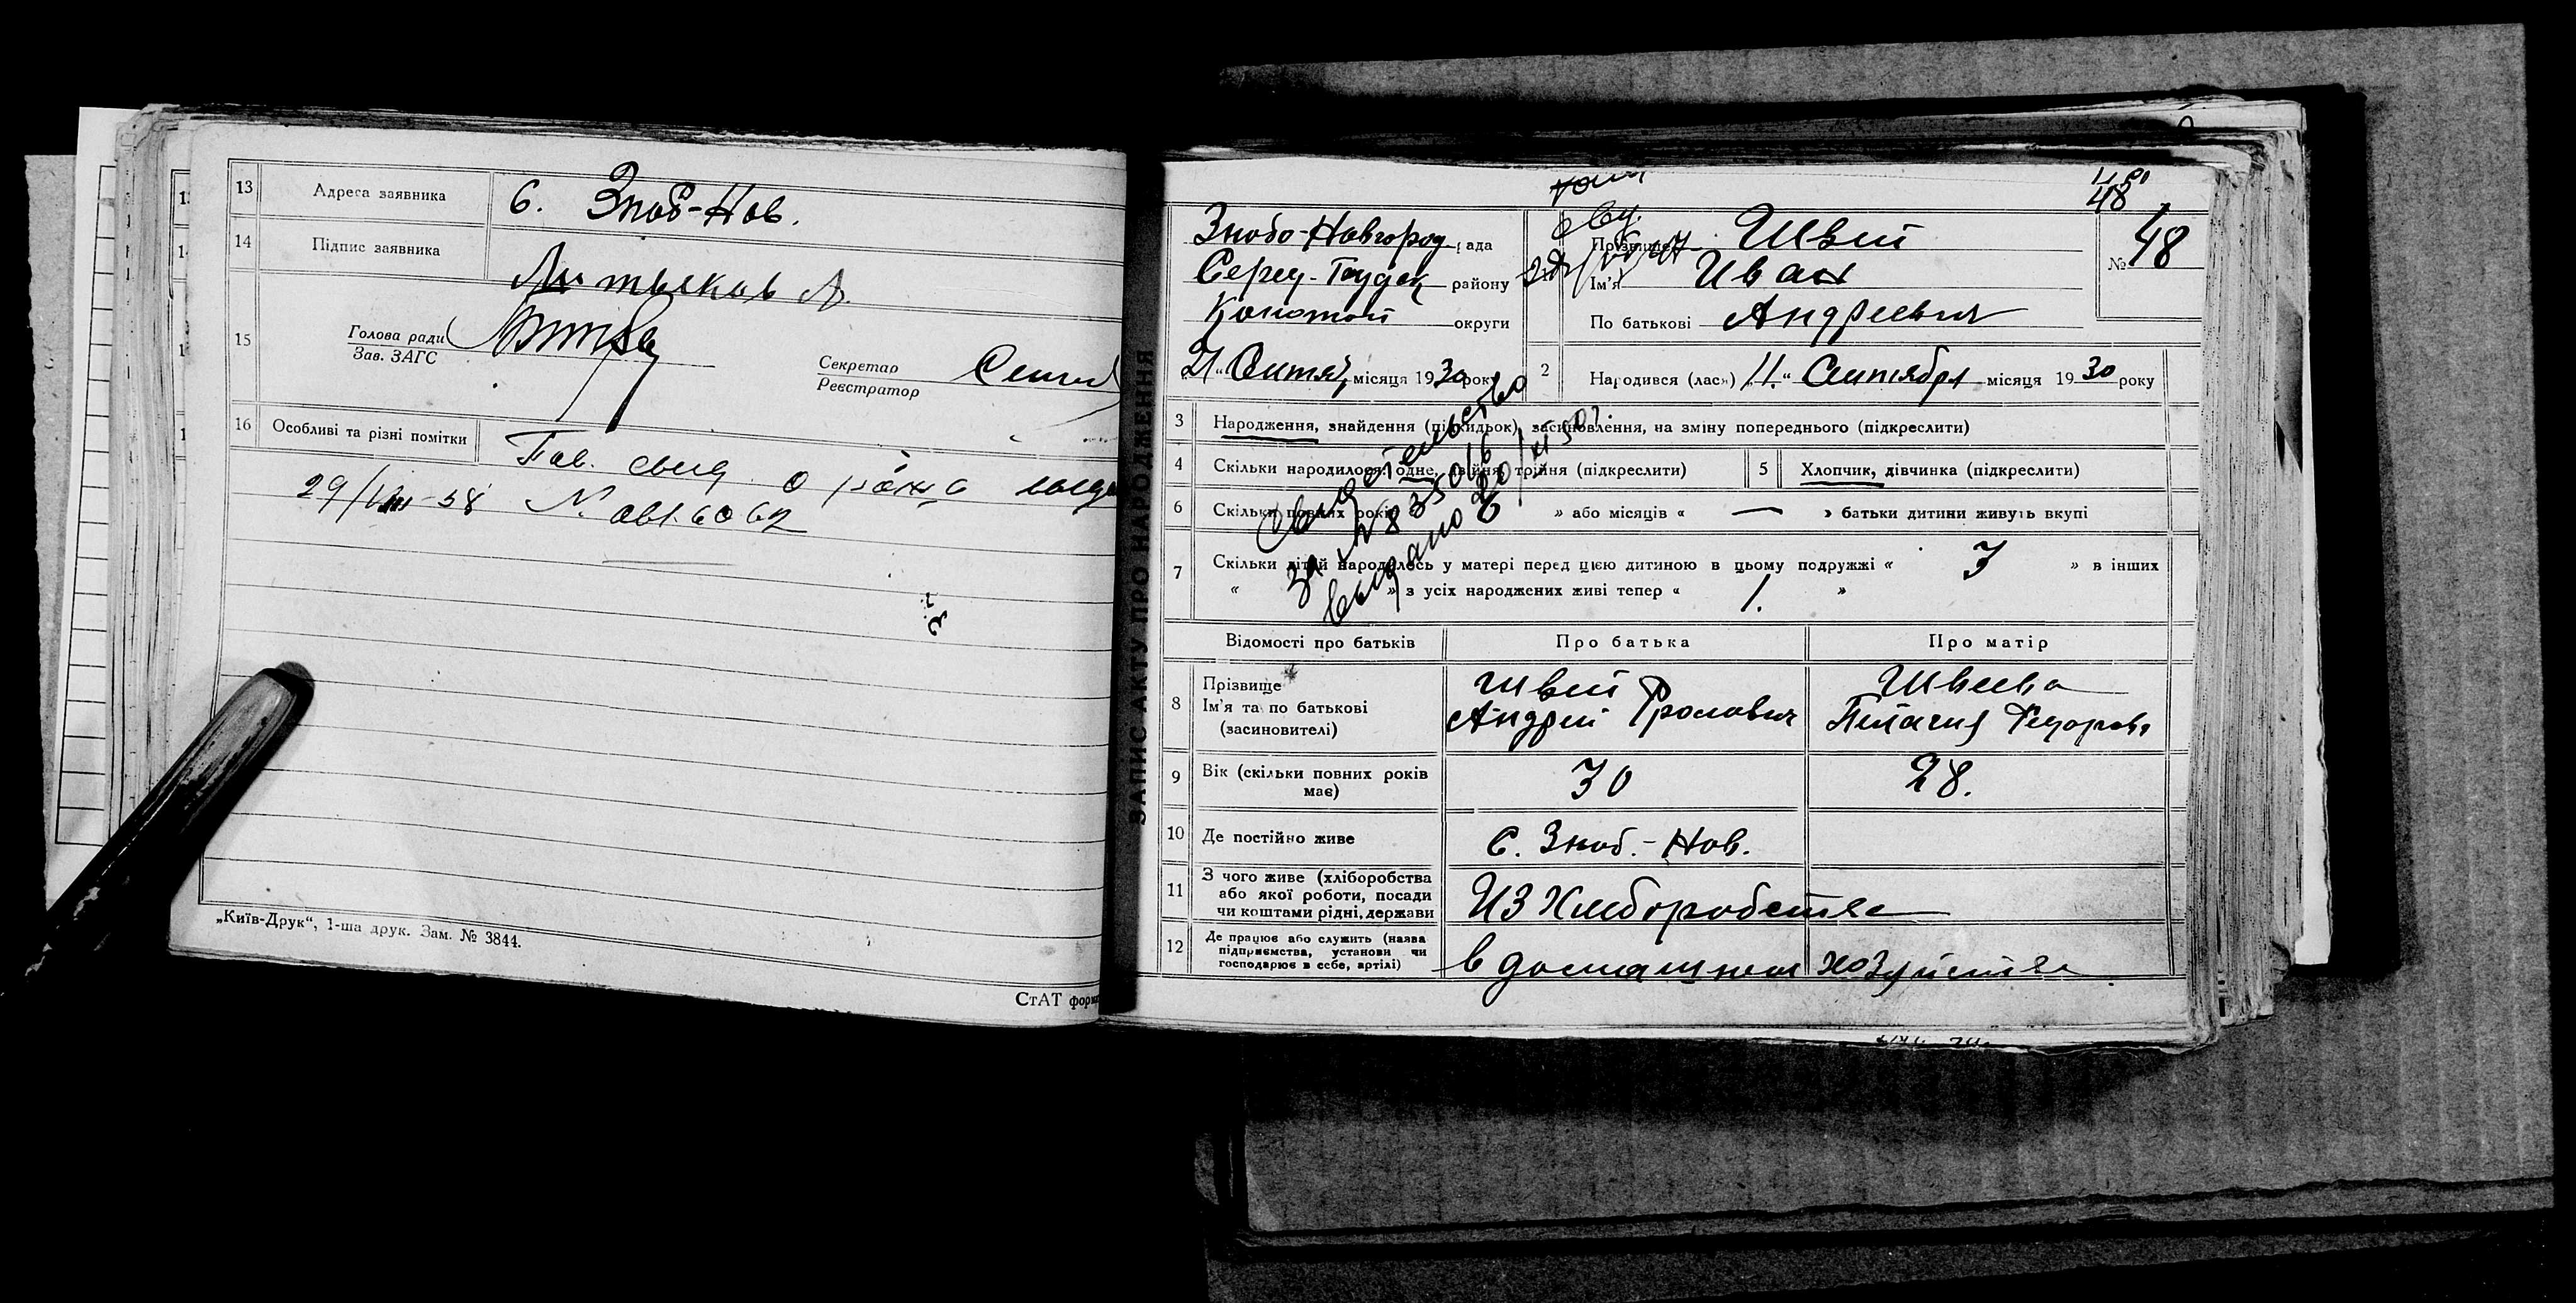 13 Адреса заявника с. Зноб-Нов.
14 Підпис заявника
15 Голова ради
Зав. ЗАГС
Секретар
Реєстратор
16 Особливі та різні помітки Пов. свид. о рожд.
29/VIII-58 N.
„Київ-Друк“, 1-ша друк. Зам. № 3844.
СтАТ форм
ЗАПИС АКТУ ПРО НАРОДЖЕННЯ
48
Знобо-Новгород рада
Серед-Будськ району
Конотоп округи
21 „ Сентяб місяця 1930 року
Прізвище Швей
Ім'я Иван
По батькові Андреевич
№ 48
2 Народився (лась) „11.“ Сентября місяця 1930 року
3 Народження, знайдення (підкидьок), засиновлення, на зміну попереднього (підкреслити)
4 Скільки народилося: одне, двійня, трійня (підкреслити)
5 Хлопчик, дівчинка (підкреслити)
6 Скільки повних років » або місяців « — » батьки дитини живуть вкупі
7 Скільки дітей народилось у матері перед цією дитиною в цьому подружжі « 3 » в інших
« » з усіх народжених живі тепер « 1. »
Свидетельство
выдано
Відомості про батьків Про батька Про матір
8 Прізвище
Ім'я та по батькові
(засиновителі)
Швей
Андрей Фролович
Швеева
Пелагия Федоровн
9 Вік (скільки повних років
має)
30
28.
10 Де постійно живе с. Зноб.-Нов.
11 З чого живе (хліборобства
або якої роботи, посади
чи коштами рідні, держави
Из Хлеборобства
12 Де працює або служить (назва
підприємства, установи чи
господарює в себе, артілі)
в домашнем хозяйстве